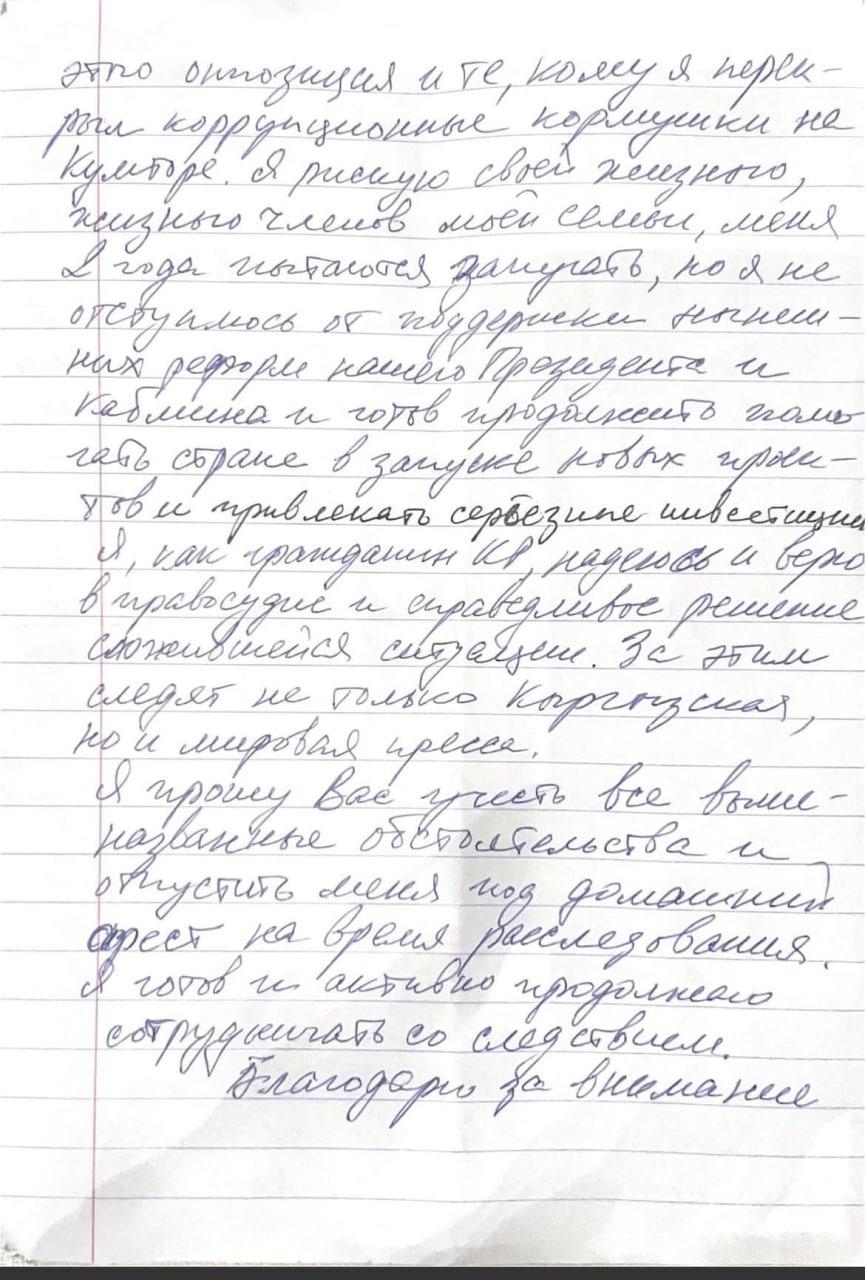 это оппозиция и те, кому я перек-
рыл коррупционные кормушки на
Кумторе. Я рискую своей жизнью,
жизнью членов моей семьи, меня
2 года пытаются запугать, но я не
отступлюсь от поддержки нынеш-
них реформ нашего Президента и
Кабмина и готов продолжить помо
гать стране в запуске новых проек-
тов и привлекать серьёзные инвестиции
Я, как гражданин КР, надеюсь и верю
в правосудие и справедливое решение
сложившейся ситуации. За этим
следят не только Кыргызская,
но и мировая пресса.
Я прошу Вас учесть все выше-
названные обстоятельства и
отпустить меня под домашний
арест на время расследования.
Я готов и активно продолжаю
сотрудничать со следствием.
Благодарю за внимание